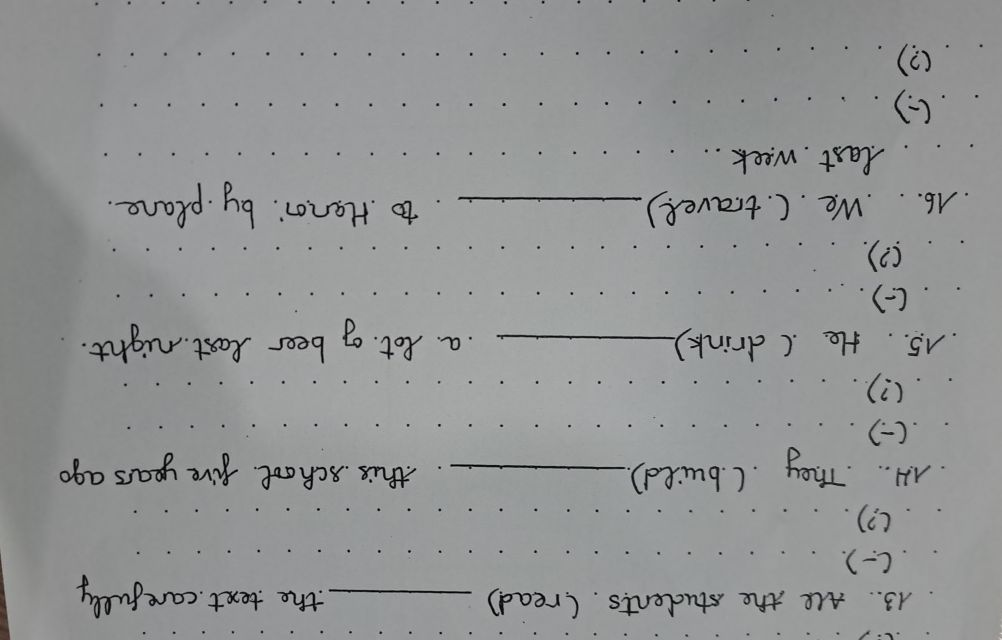 13. All the students (read) ________ the text carefully
(-)
(?)
14. They (build) ________ this school five years ago
(-)
(?)
15. He (drink) ________ a lot of beer last night.
(-)
(?)
16. We (travel) ________ to Hanoi by plane
last week
(-)
(?)